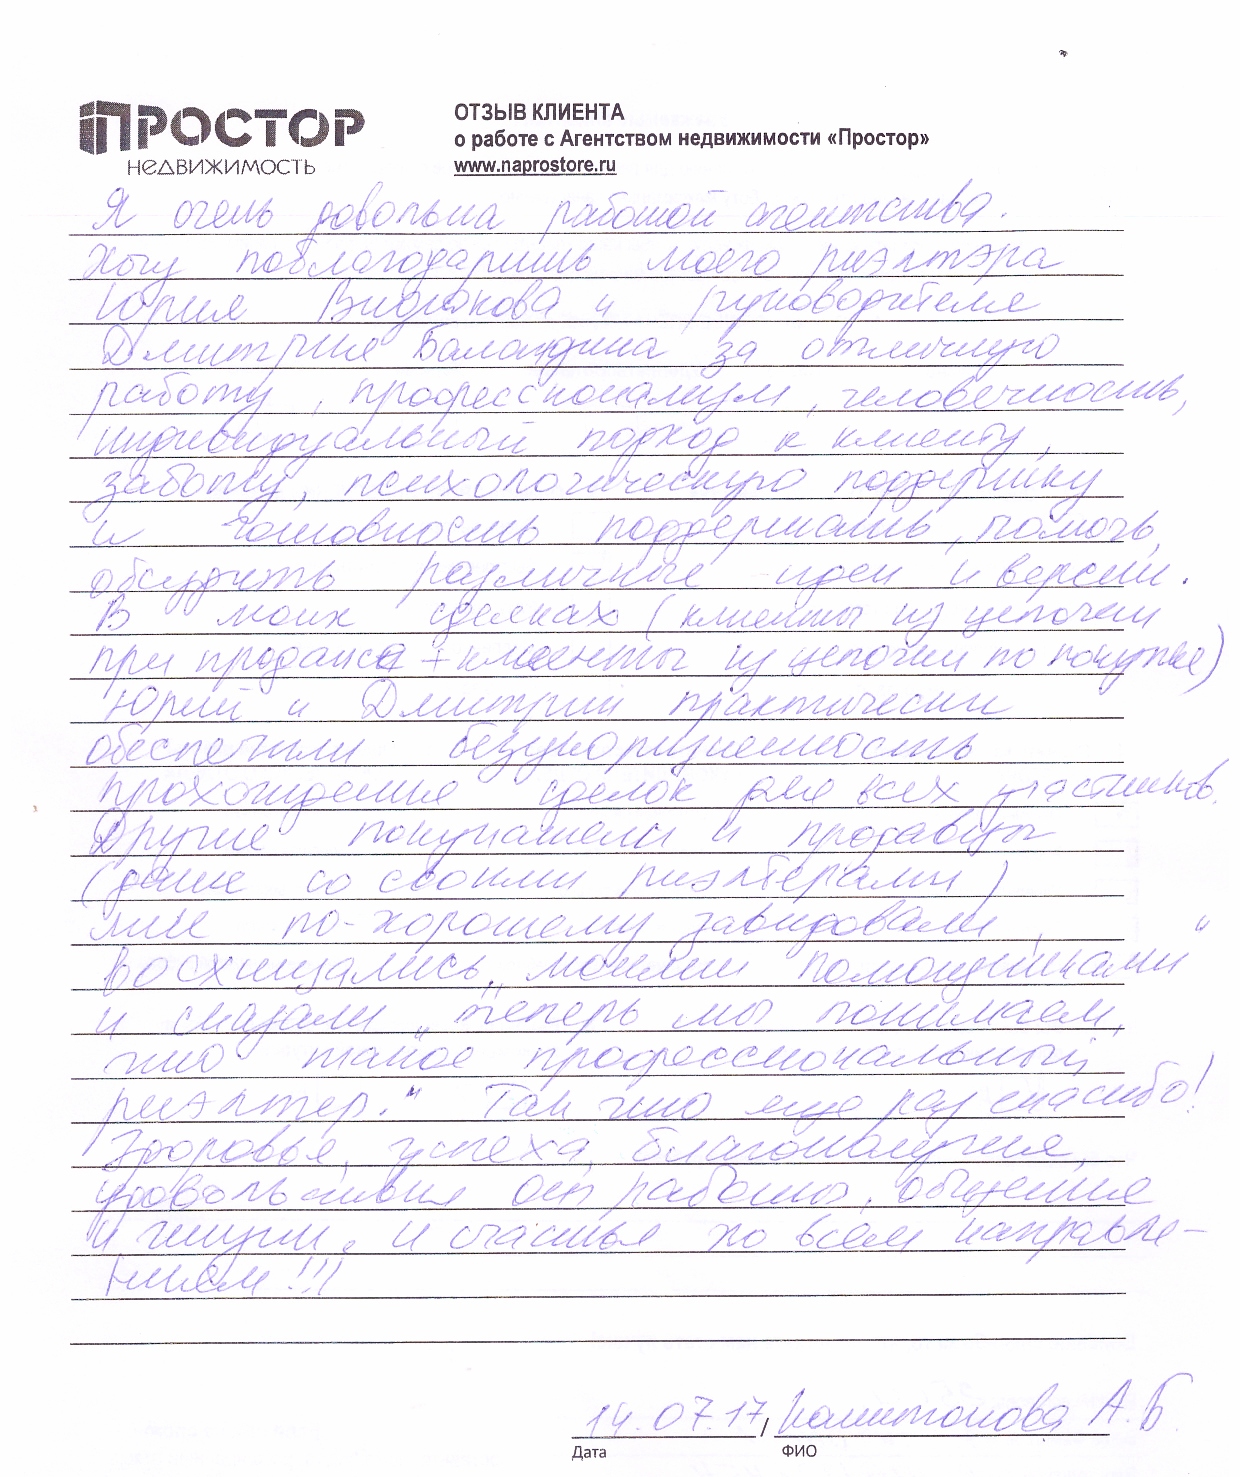 ПРОСТОР
НЕДВИЖИМОСТЬ
ОТЗЫВ КЛИЕНТА
о работе с Агентством недвижимости «Простор»
www.naprostore.ru
Я очень довольна работой агентства.
Хочу поблагодарить моего риэлтэра
Юрия и руководителя
Дмитрия Баландина за отличную
работу, профессионализм, человечность,
индивидуальный подход к клиенту,
заботу, психологическую поддержку
и готовность поддержать, помочь,
обсудить различные идеи и версии.
В моих сделках (клиенты из цепочки
при продаже + клиенты из цепочки по покупке)
Юрий и Дмитрий практически
обеспечили безукоризненность
прохождения сделок для всех участников.
Другие покупатели и продавцы
(даже со своими риэлтерами)
мне по-хорошему завидовали,
восхищались „моими помощниками“
и сказали „теперь мы понимаем,
что такое профессиональный
риэлтер.“ Так что еще раз спасибо!
Здоровья, успеха, благополучия,
удовольствия от работы, общения
и жизни, и счастья по всем направле-
ниям!!!
14.07.17 / А.Б.
Дата ФИО